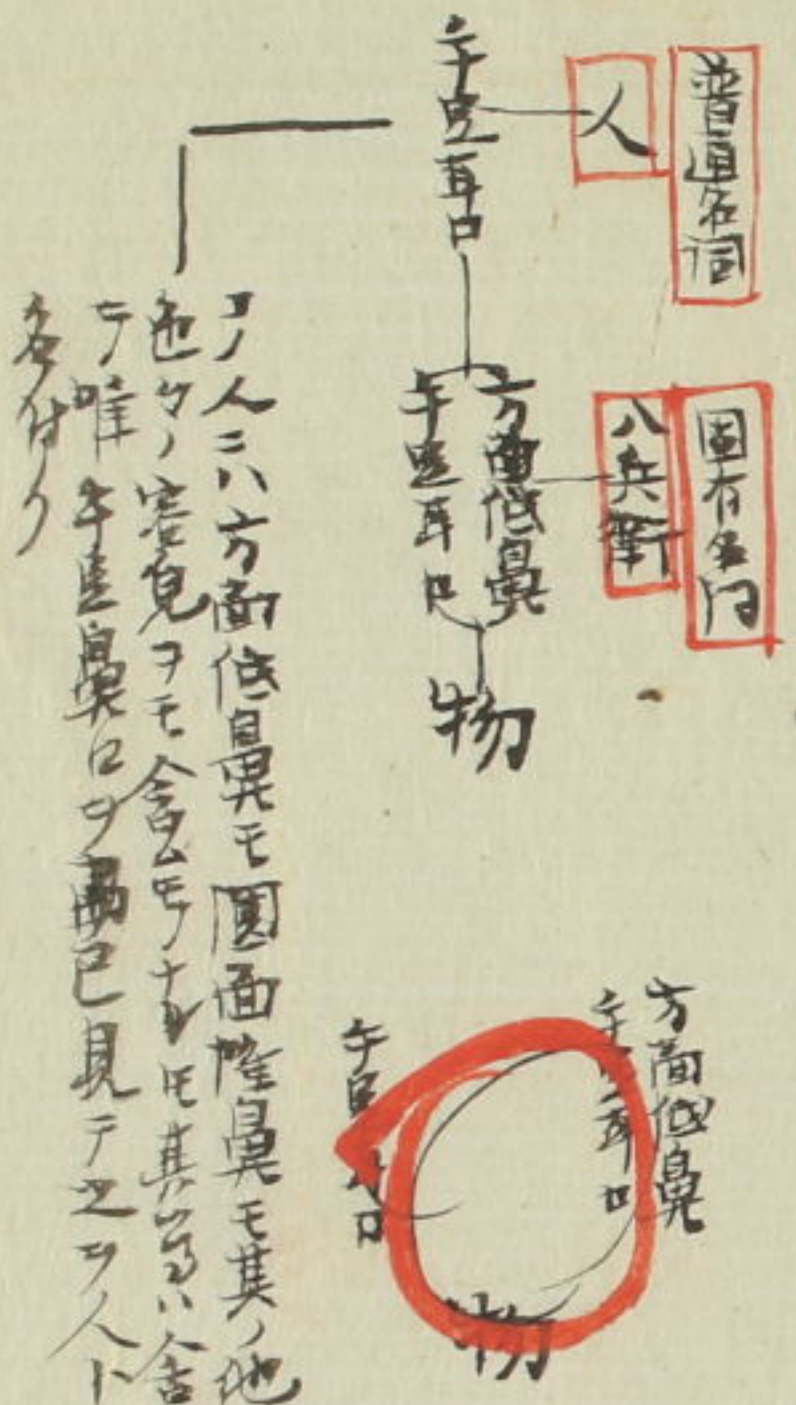 普通名詞
人
手足耳口
固有名詞
八兵衛
方面低鼻
手足耳口
物
方面低鼻
手足耳口
手足 口
物
コノ人ニハ方面低鼻モ圓面隆鼻モ其ノ他
色々ノ容皃ヲモ含ムモノナレ𪜈其等ハ舍
テ唯手足鼻口ヲ而已見テ之ヲ人ト
名付ク